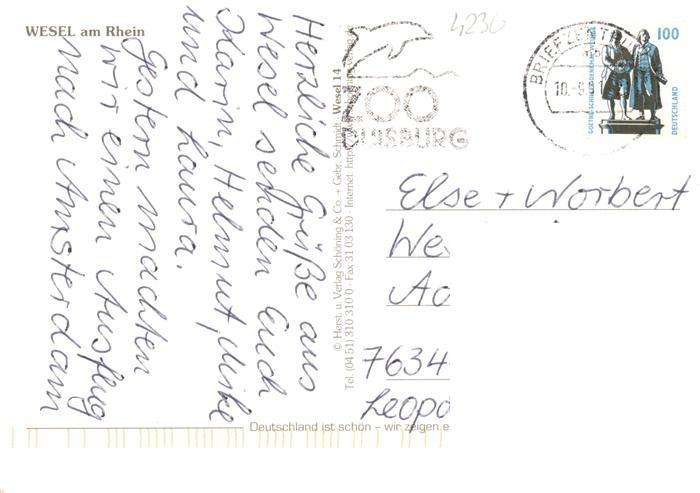 WESEL am Rhein
Herzliche Grüße aus
Wesel senden Euch
Karin, Helmut, Ulrike
und Laura.
Gestern machten
wir einen Ausflug
nach Amsterdam
© Herst. u. Verlag Schöning & Co. + Gebr. Schmidt, Wesel 14
Tel. (04 51) 310 310 0 · Fax 31 03 130 · Internet: http
4230
ZOO
DUISBURG
BRIEFZENTR
10.-8.
GOETHE-SCHILLER-DENKMAL WEIMAR
100
DEUTSCHLAND
Else + Norbert
We
Ao
7634
Leopo
Deutschland ist schön – wir zeigen.e